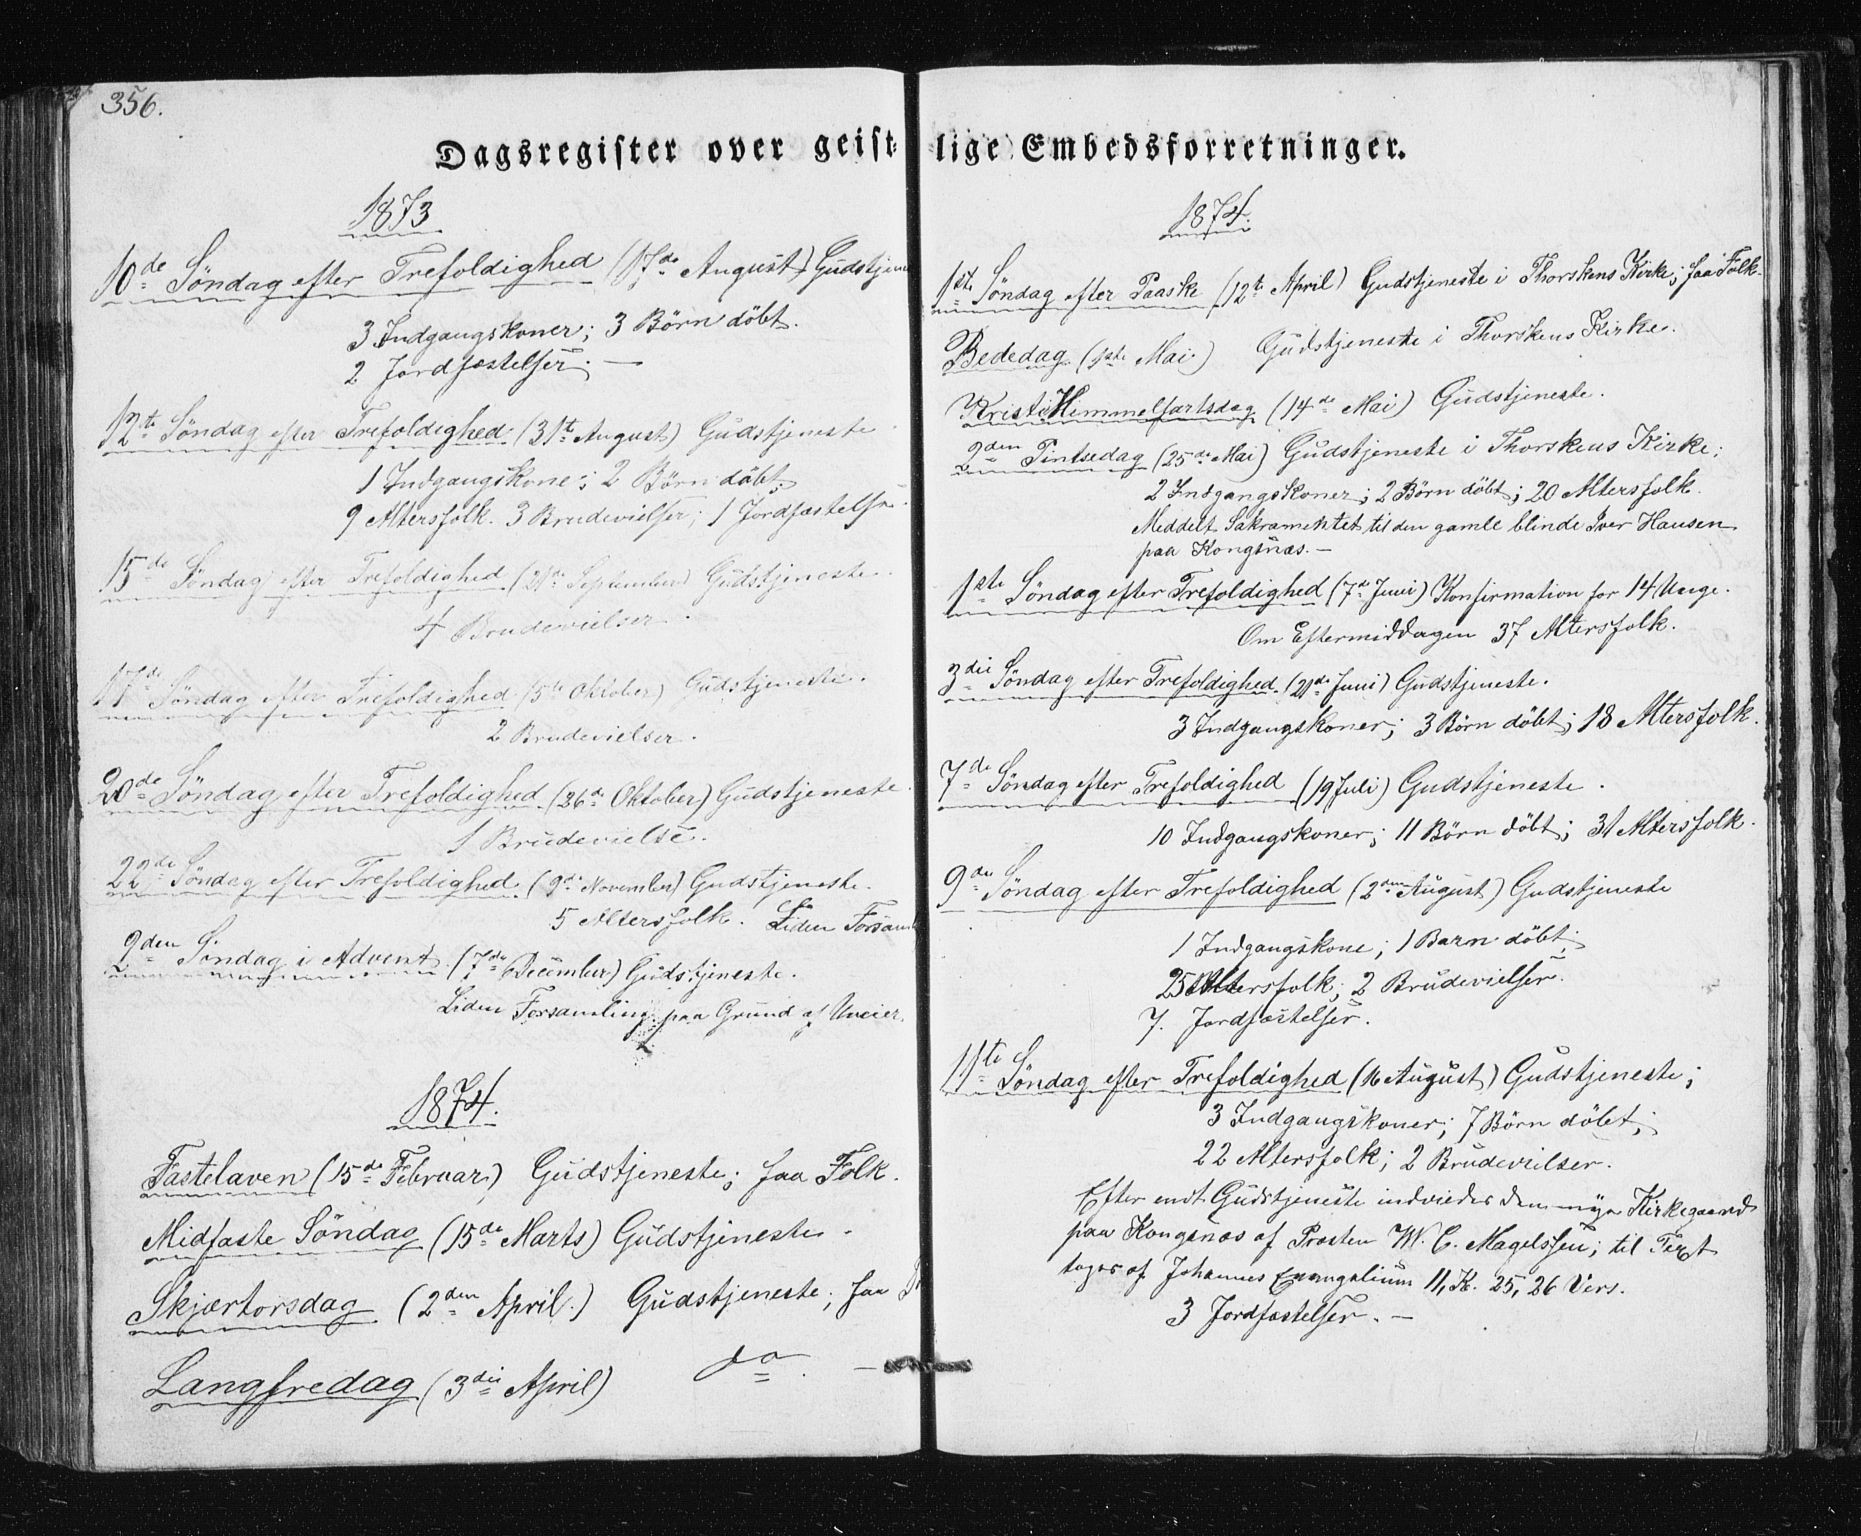 356.
Dagsregister over geistlige Embedsforretninger.
1873
10de Søndag efter Trefoldighed (17de August) Gudstjen
3 Indgangskoner; 3 Børn döbt.
2 Jordfæstelser. —
12te Søndag efter Trefoldighed (31te August) Gudstjeneste
1 Indgangskone; 2 Børn döbt;
9 Altersfolk. 3 Brudevielser; 1 Jordfæstelse.
15de Søndag efter Trefoldighed (21de September) Gudstjeneste
4 Brudevielser.
17de Søndag efter Trefoldighed (5te Oktober) Gudstjeneste.
2 Brudevielser.
20de Søndag efter Trefoldighed (26de Oktober) Gudstjeneste
1 Brudevielse.
22de Søndag efter Trefoldighed (9de November) Gudstjeneste.
5 Altersfolk. Liden Forsaml
2den Søndag i Advent (7de December) Gudstjeneste.
Liden Forsamling paa Grund af Uveir.
1874.
Fastelaven (15de Februar) Gudstjeneste; faa Folk.
Midfaste Søndag (15de Marts) Gudstjeneste.
Skjærtorsdag (2den April.) Gudstjeneste; faa F
Langfredag (3die April) do. —
1874.
1ste Søndag efter Paaske (12te April) Gudstjeneste i Thorskens Kirke; faa Folk.
Bededag (1ste Mai.) Gudstjeneste i Thorskens Kirke.
Kristi Himmelfartsdag (14de Mai) Gudstjeneste.
2den Pintsedag (25de Mai) Gudstjeneste i Thorskens Kirke;
2 Indgangskoner; 2 Børn döbt; 20 Altersfolk.
Meddelt Sakramentet til den gamle blinde Iver Hansen
paa Kongsnæs. —
1ste Søndag efter Trefoldighed (7de Juni) Konfirmation for 14 Unge.
Om Eftermiddagen 37 Altersfolk.
3die Søndag efter Trefoldighed (21de Juni) Gudstjeneste.
3 Indgangskoner; 3 Børn döbt; 18 Altersfolk.
7de Søndag efter Trefoldighed (19 Juli) Gudstjeneste.
10 Indgangskoner; 11 Børn döbt; 31 Altersfolk.
9de Søndag efter Trefoldighed (2den August) Gudstjeneste
1 Indgangskone; 1 Barn döbt;
25 Altersfolk; 2 Brudevielser.
7. Jordfæstelser.
11te Søndag efter Trefoldighed (16 August) Gudstjeneste;
3 Indgangskoner; 7 Børn döbt;
22 Altersfolk; 2 Brudevielser.
Efter endt Gudstjeneste indviedes den nye Kirkegaard
paa Kongsnæs af Provsten W. C. Magelssen; til Text
toges af Johannes Evangelium 11, K. 25, 26 Vers.
3 Jordfæstelser. —